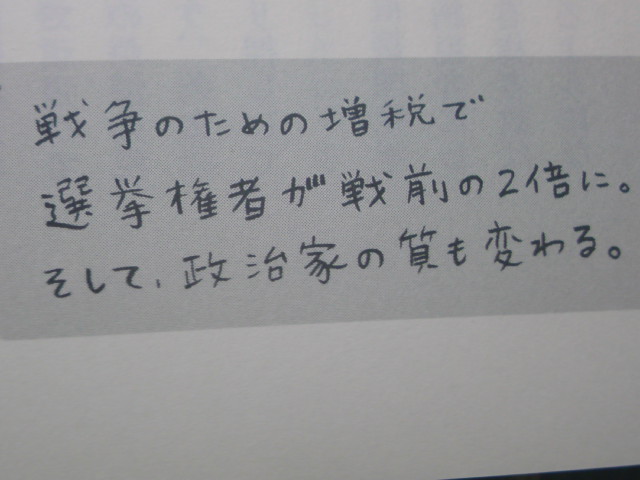 戦争のための増税で
選挙権者が戦前の2倍に。
そして、政治家の質も変わる。